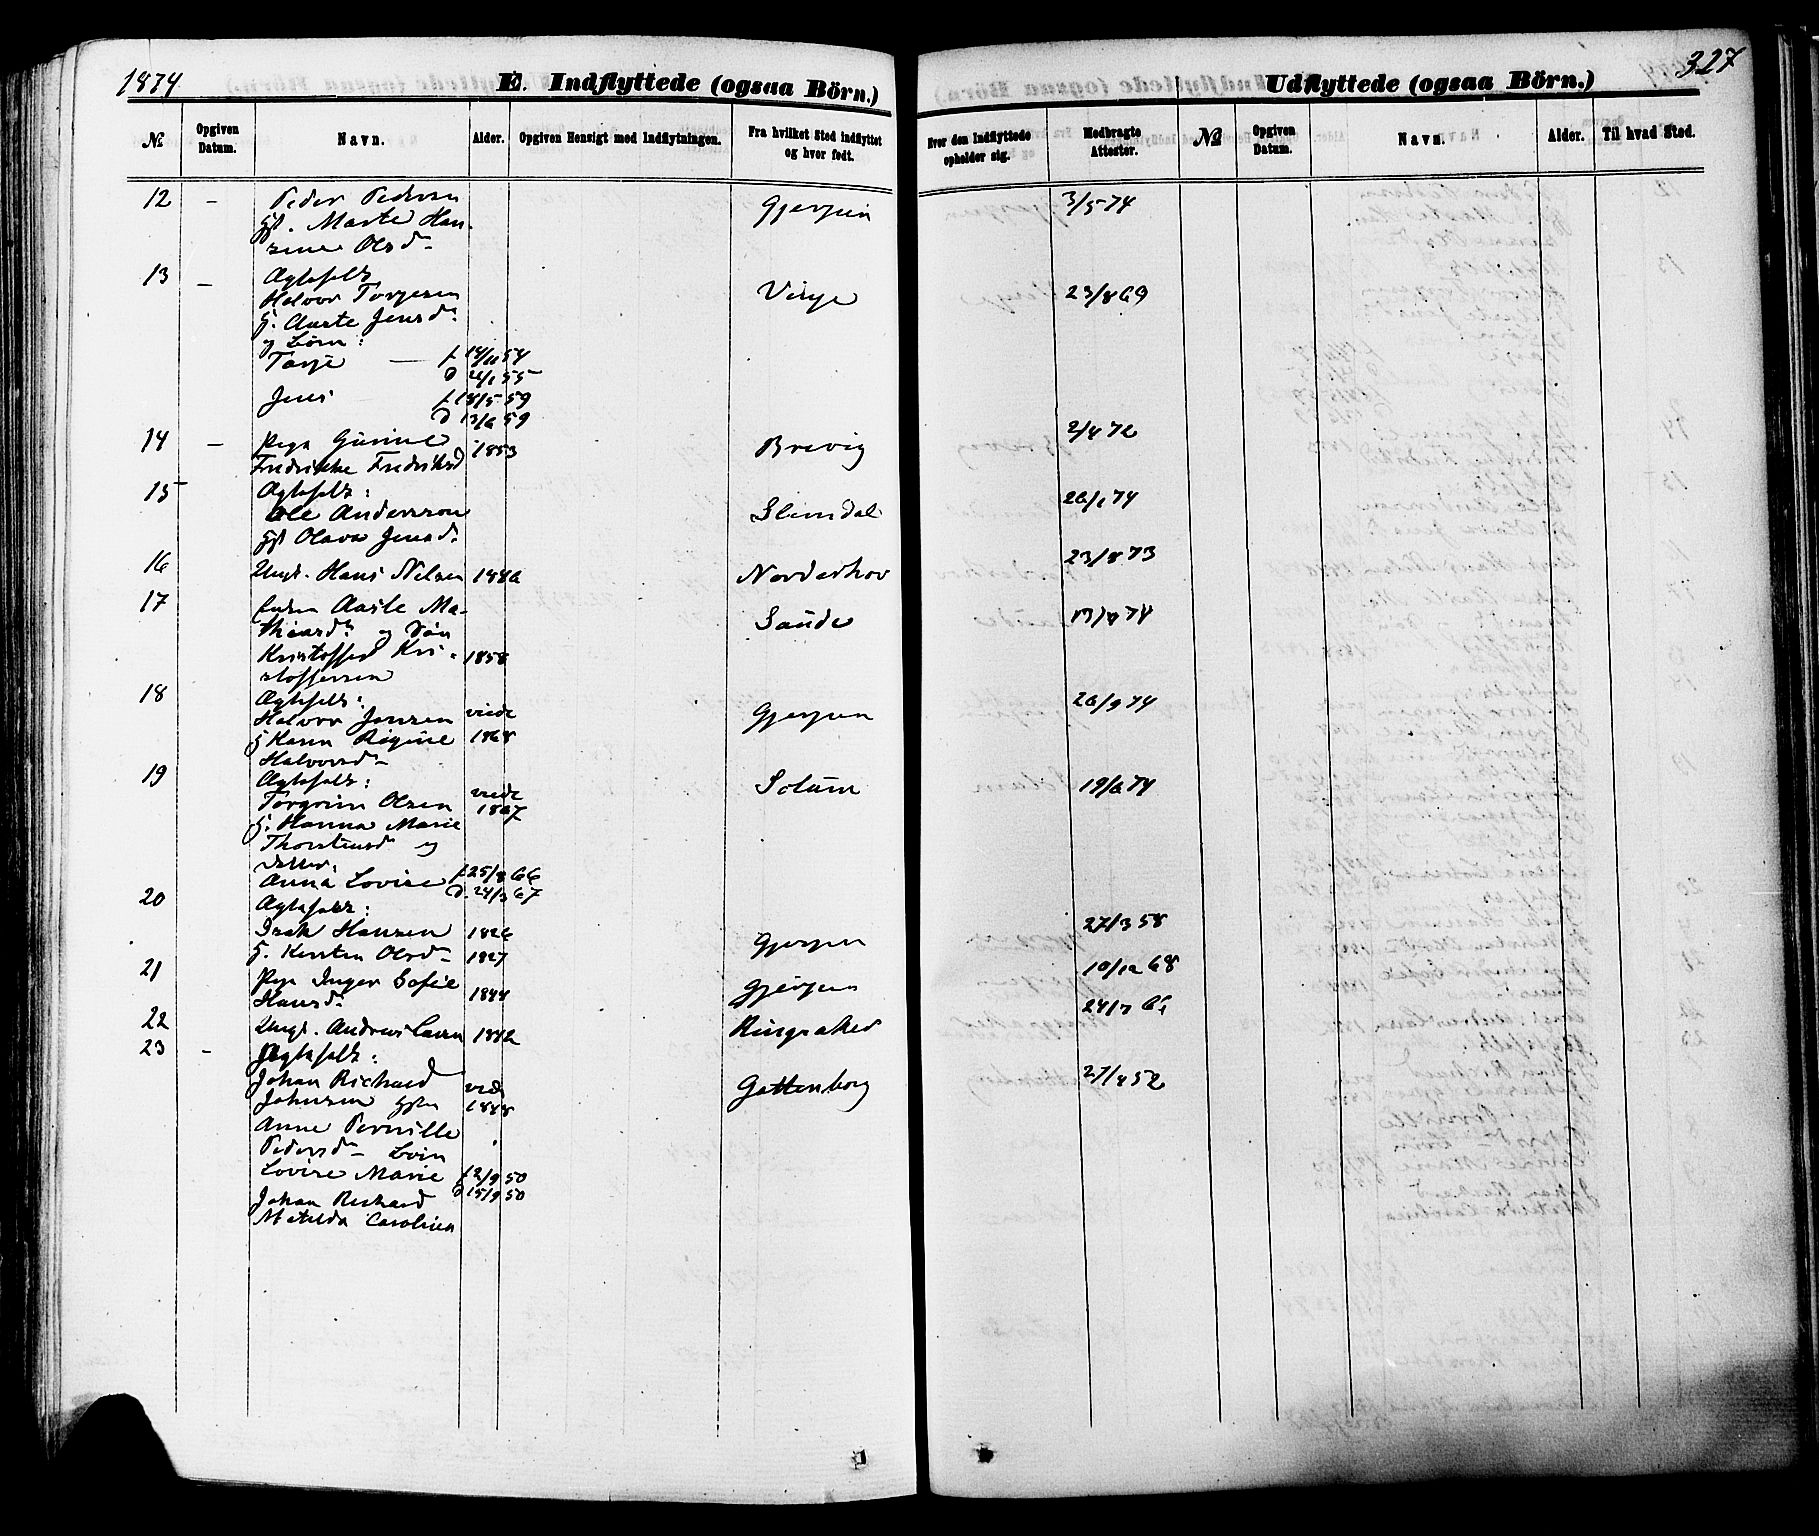 1874
E. Indflyttede (ogsaa Börn.)
Udflyttede (ogsaa Börn.)
327
№ Opgiven Datum. Navn. Alder. Opgiven Hensigt med Indflytningen. Fra hvilket Sted indflyttet og hvor født. Hvor den Indflyttede opholder sig. Medbragte Attester. № Opgiven Datum. Navn. Alder. Til hvad Sted.
12 - Peder Pedersen Gjerpen 3/5 74
Hst. Marte Han-
sine Olsd
13 - Ægtefolk
Halvor Torjesen Vinje 23/8 69
H. Aaste Jensd
og Børn:
Torje - f 14/11 54
d 21/1 55
Jens f 18/5 59
d 13/6 59
14 - Pige Gurine 1853 Brevig 2/4 72
Fredrikke Fredriksd
15 Ægtefolk: 26/1 74
Ole Anderson Slemdal
Hst Olava Jensd
16 Ungk. Hans Nilsen 1846 Norderhov 23/8 73
17 Enken Aaste Ma- Saude 74
thiasd og Søn
Kristoffer Kri- 1858
stoffersen
18 Ægtefolk: 26/9 74
Halvor Jensen viede Gjerpen
H Karen Regine 1868
Halvorsd
19 Ægtefolk: Solum 19/6 74
Torgrim Olsen viede
H. Hanna Marie 1867
Thorstensd og
Datter:
Anna Lovise f 25/8 66
d. 24/3 67
20 Ægtefolk:
Isak Hansen 1826 Gjerpen 27/3 58
H. Kirsten Olsd 1827
21 Pige Inger Sofie 1844 Gjerpen 10/12 68
Hansd
22 Ungk. Andreas Larsen 1842 Ringsaker 24/7 66
23 - Ægtefolk:
Johan Richard vied Gøttenborg 27/4 52
Johnsen Hstr 1848
Anne Pernille
Pedersd - Børn
Lovise Marie f 2/9 50
d 15/9 50
Johan Richard
Matilda Carolina